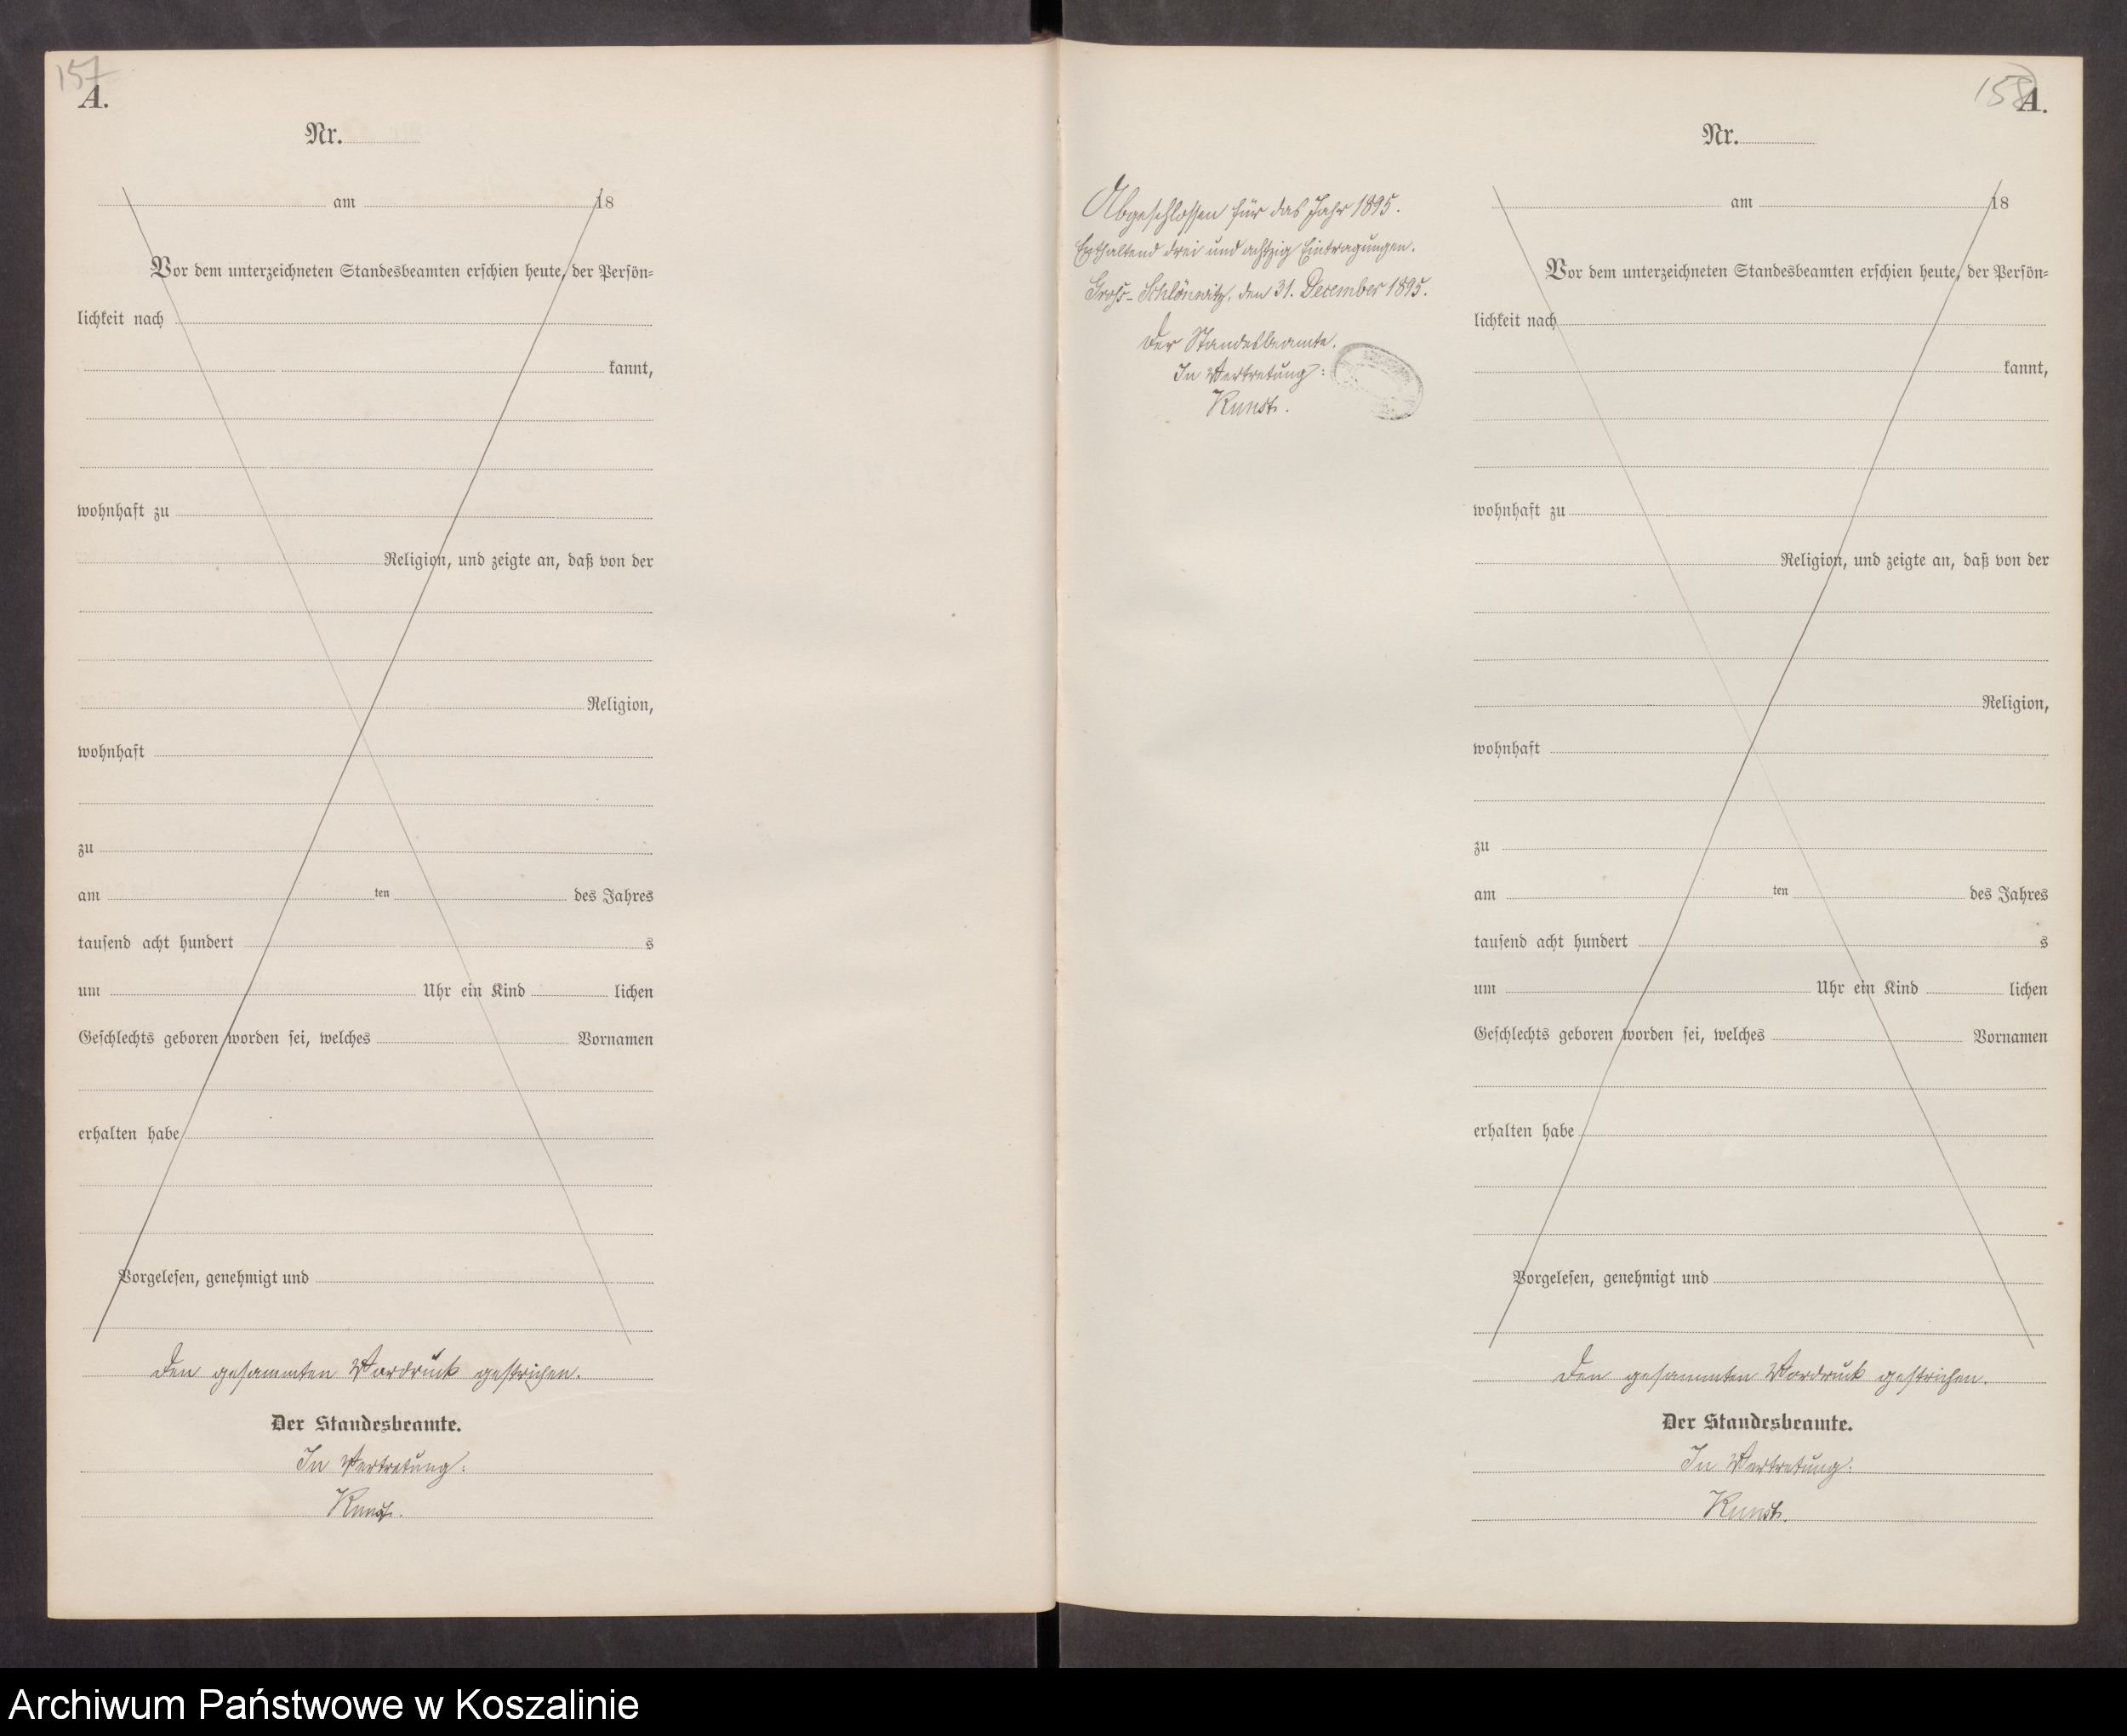 157
A.
Nr.
am 18
Vor dem unterzeichneten Standesbeamten erschien heute, der Persön=
lichkeit nach
kannt,
wohnhaft zu
Religion, und zeigte an, daß von der
Religion,
wohnhaft
zu
am ten des Jahres
tausend acht hundert s
um Uhr ein Kind lichen
Geschlechts geboren worden sei, welches Vornamen
erhalten habe
Vorgelesen, genehmigt und
Den gesammten Vordruck gestrichen.
Der Standesbeamte.
In Vertretung:
Kunst.
158
A.
Abgeschlossen für das Jahr 1895.
Enthaltend drei und achtzig Eintragungen.
Groß-Schlönwitz, den 31. December 1895.
Der Standesbeamte.
In Vertretung:
Kunst.
Nr.
am 18
Vor dem unterzeichneten Standesbeamten erschien heute, der Persön=
lichkeit nach
kannt,
wohnhaft zu
Religion, und zeigte an, daß von der
Religion,
wohnhaft
zu
am ten des Jahres
tausend acht hundert s
um Uhr ein Kind lichen
Geschlechts geboren worden sei, welches Vornamen
erhalten habe
Vorgelesen, genehmigt und
Den gesammten Vordruck gestrichen.
Der Standesbeamte.
In Vertretung:
Kunst.
Archiwum Państwowe w Koszalinie